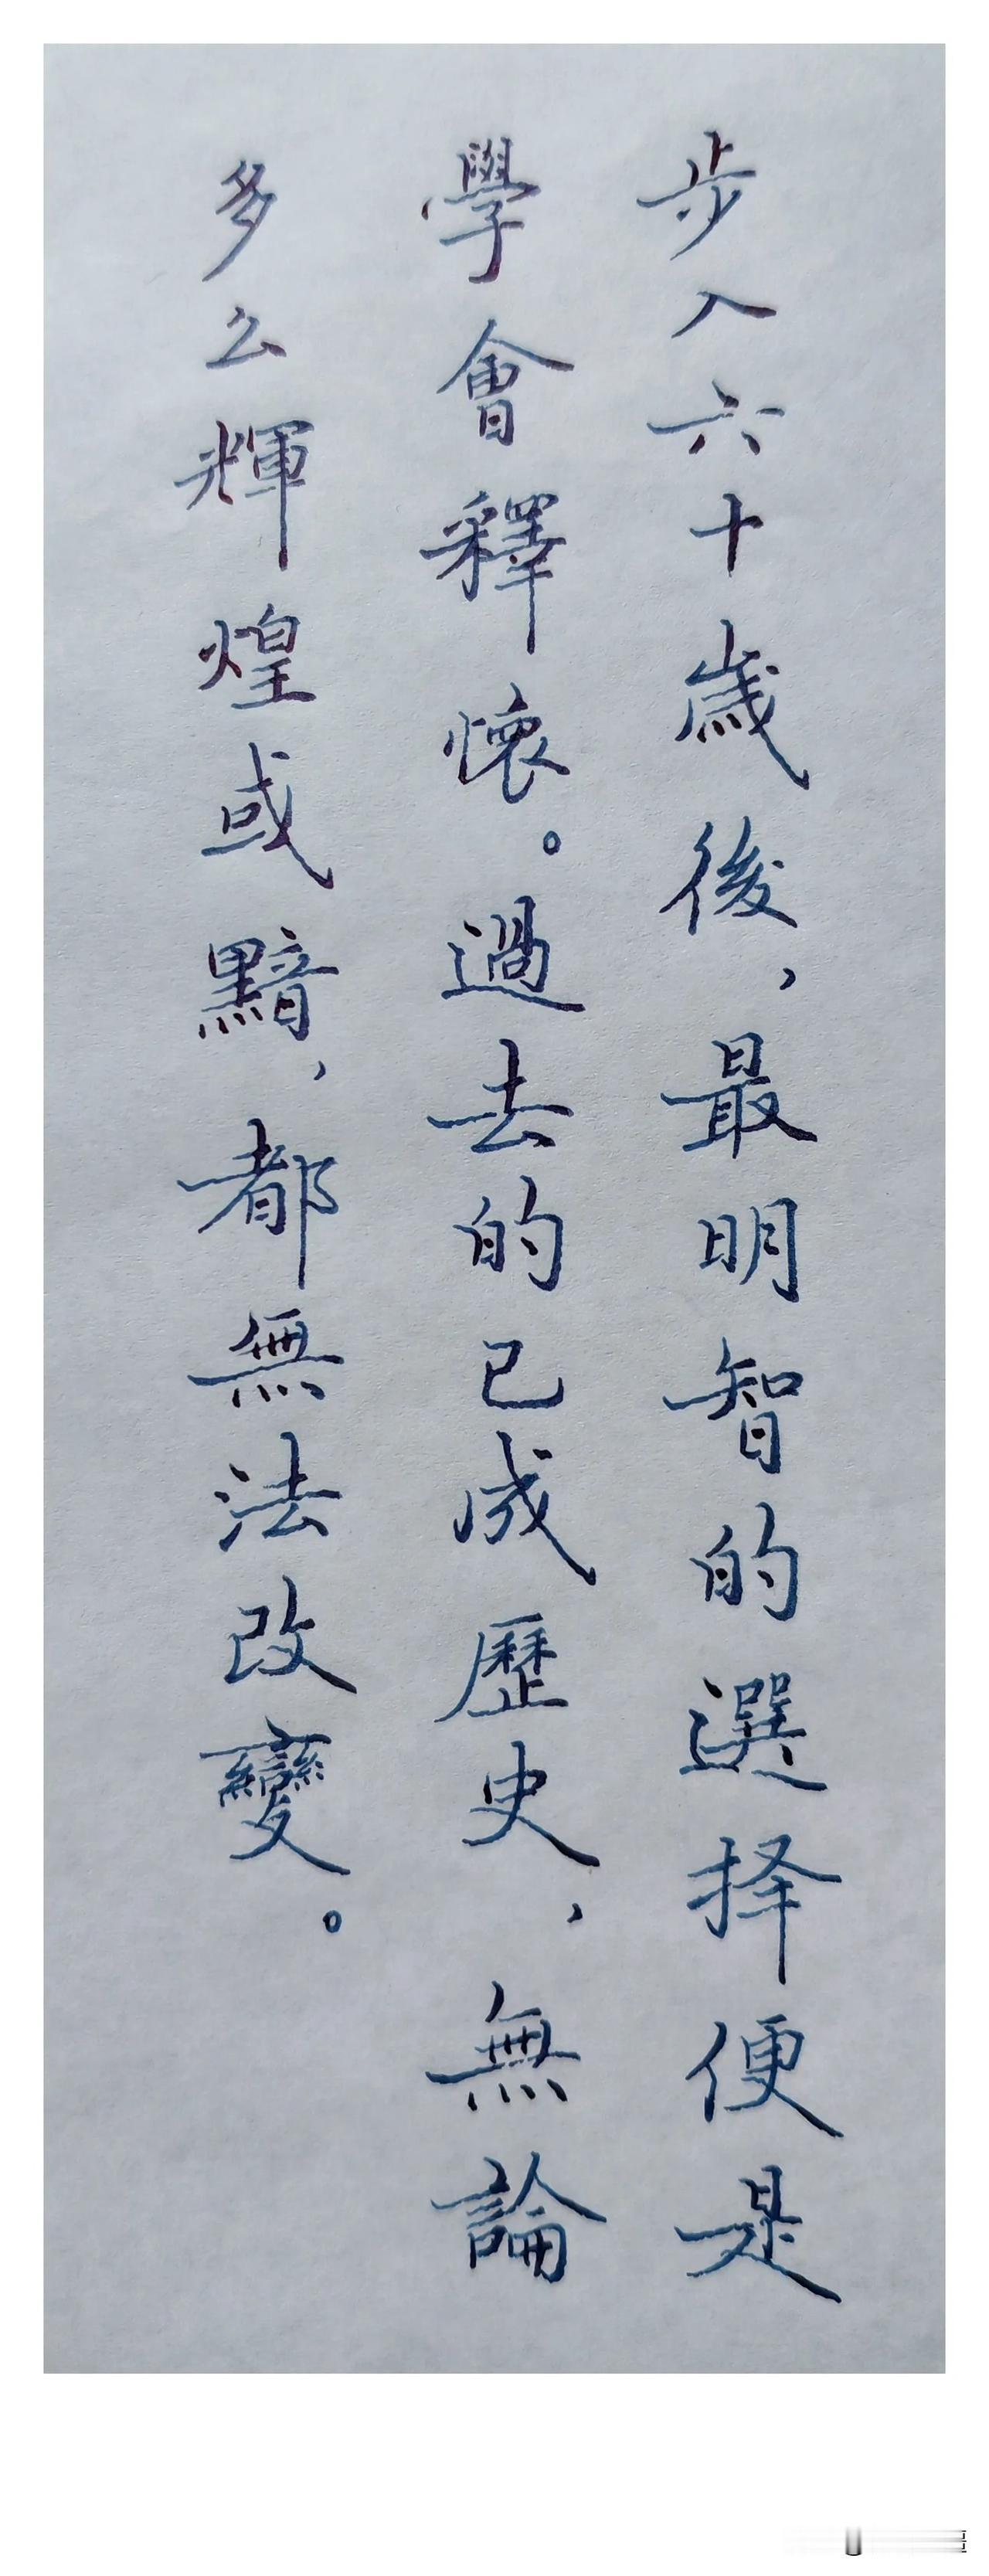 步入六十歲後，最明智的選择便是
學會釋懷。過去的已成歷史，無論
多么輝煌或黯，都無法改變。